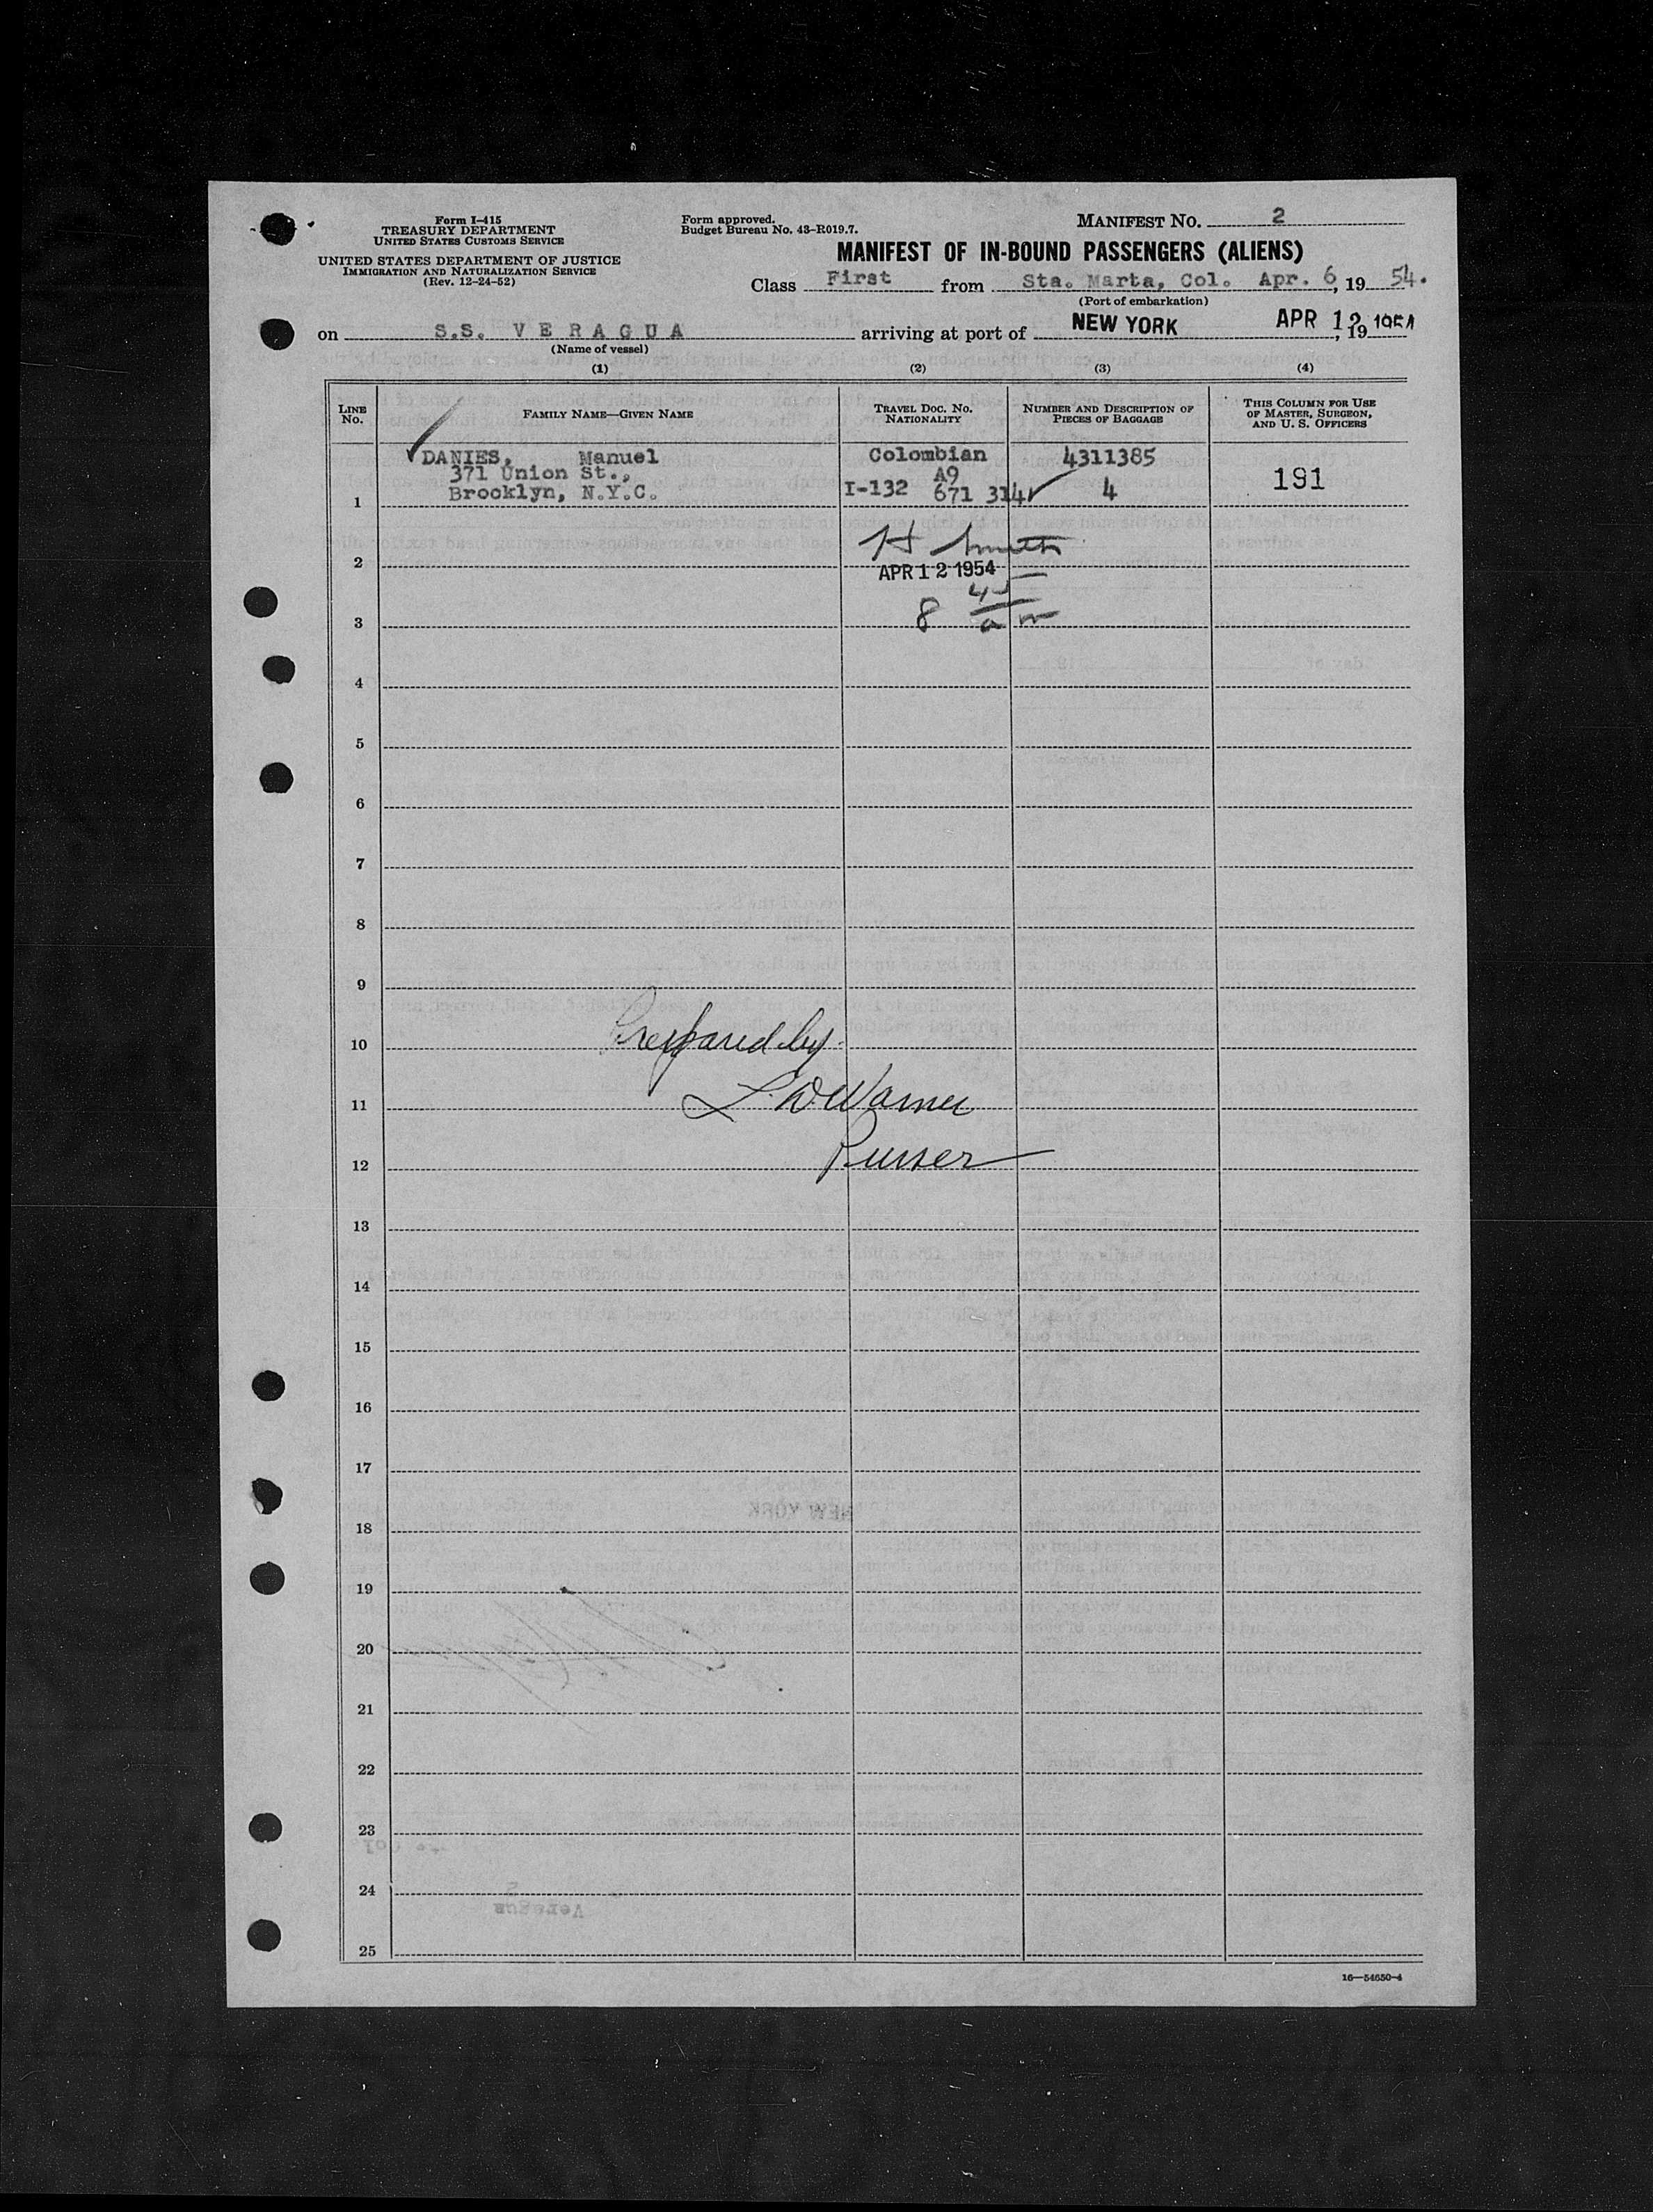 Form I-415
TREASURY DEPARTMENT
UNITED STATES CUSTOMS SERVICE
UNITED STATES DEPARTMENT OF JUSTICE
IMMIGRATION AND NATURALIZATION SERVICE
(Rev. 12-24-52)
Form approved.
Budget Bureau No. 43-R019.7.
MANIFEST NO. 2
MANIFEST OF IN-BOUND PASSENGERS (ALIENS)
Class First from Sta. Marta, Col. Apr. 6, 19 54.
(Port of embarkation)
on S.S. VERAGUA arriving at port of NEW YORK APR 12, 19 1954
(Name of vessel)
(1) (2) (3) (4)
LINE NO. FAMILY NAME—GIVEN NAME TRAVEL DOC. NO. NATIONALITY NUMBER AND DESCRIPTION OF PIECES OF BAGGAGE THIS COLUMN FOR USE OF MASTER, SURGEON, AND U. S. OFFICERS
DANIES, Manuel Colombian 4311385
371 Union St., A9 191
1 Brooklyn, N.Y.C. I-132 671 314 4
H Smith
2 APR 12 1954
3 8 45 am
4
5
6
7
8
9
10 Prepared by
11 L. D. Warner
12 Purser
13
14
15
16
17
18 NEW YORK
19
20
21
22
23
24
Veragua
25
16—54650-4